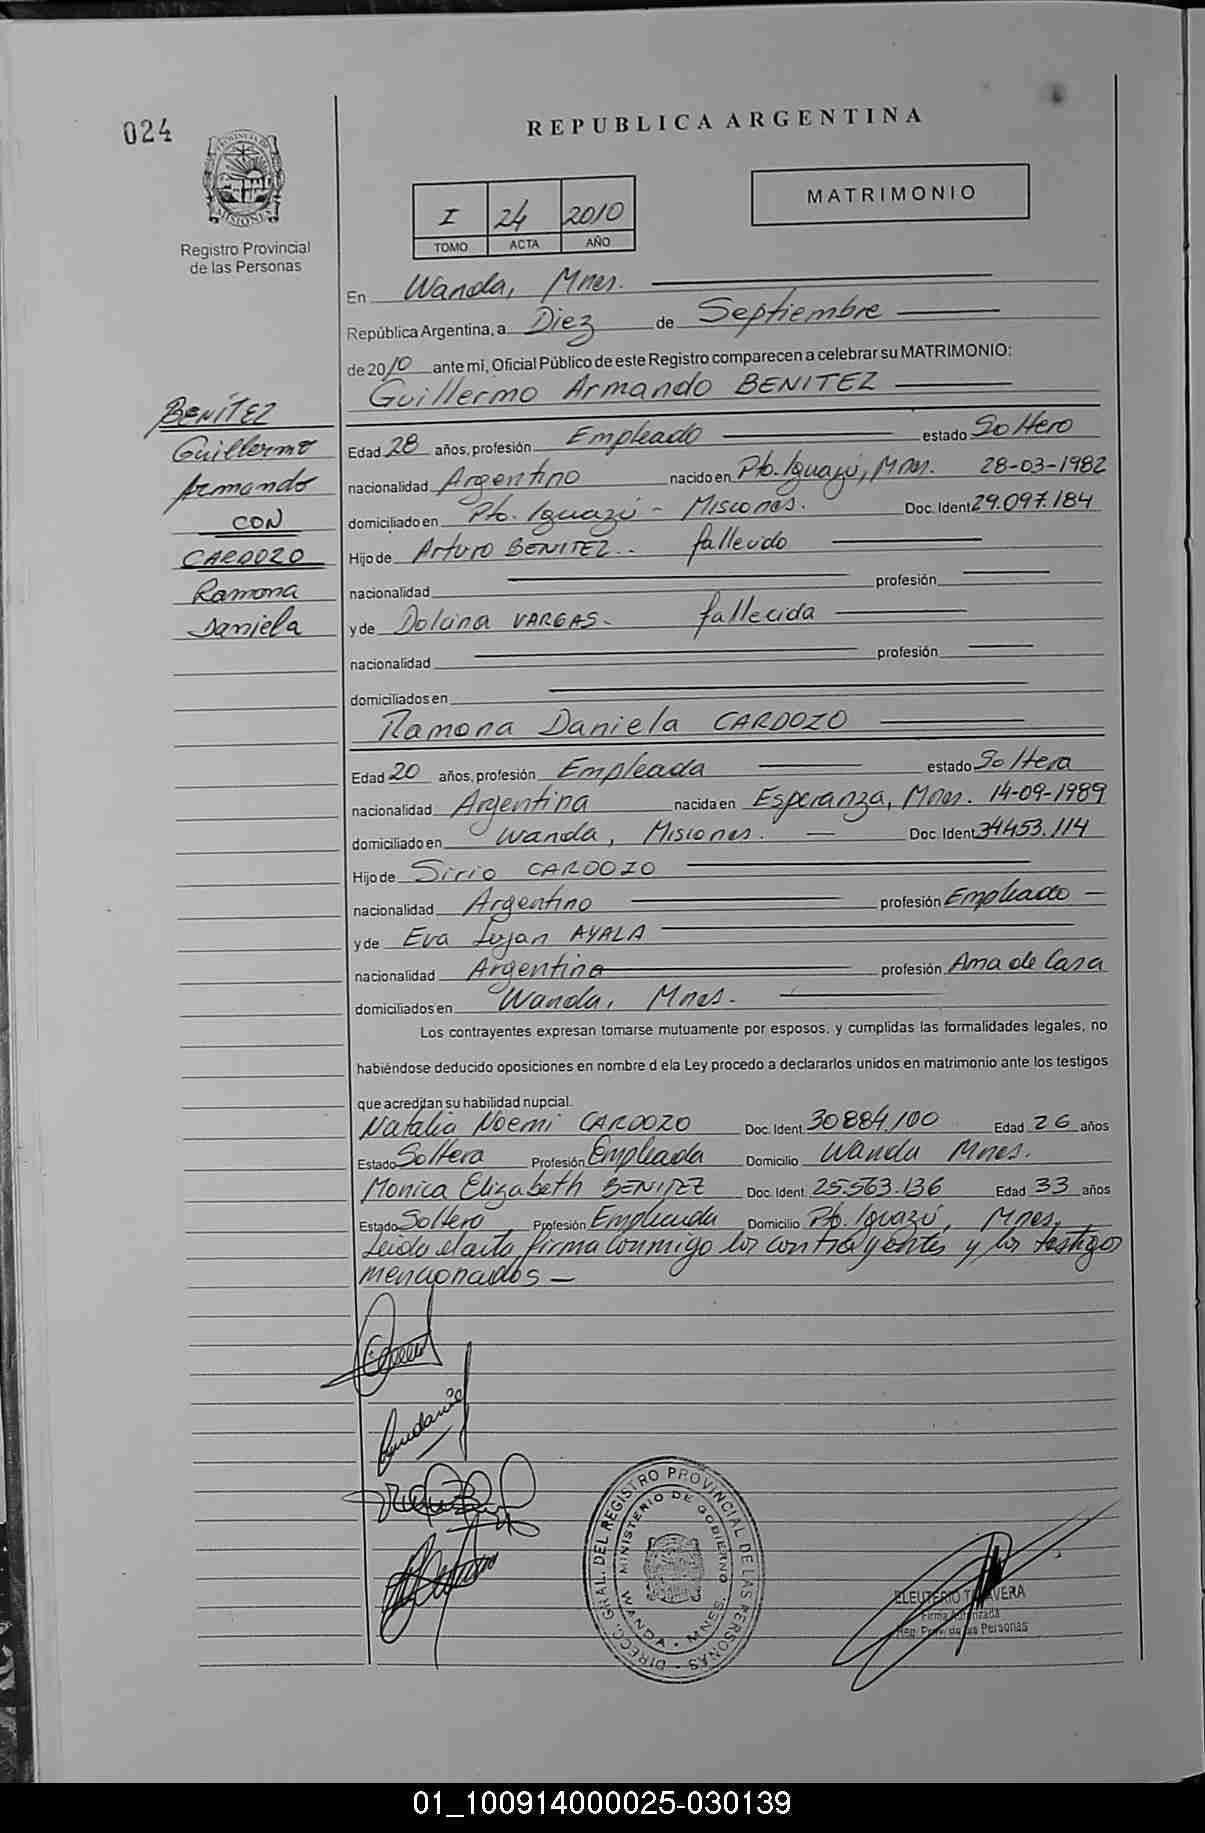 024
REPUBLICA ARGENTINA
PROVINCIA DE MISIONES
Registro Provincial
de las Personas
I 24 2010
TOMO ACTA AÑO
MATRIMONIO
En Wanda, Mnes.
República Argentina, a Diez de Septiembre
de 2010 ante mi, Oficial Público de este Registro comparecen a celebrar su MATRIMONIO:
Guillermo Armando BENITEZ
BENÍTEZ
Guillermo
Armando
CON
CARDOZO
Ramona
Daniela
Edad 28 años, profesión Empleado estado Soltero
nacionalidad Argentino nacido en Pto. Iguazú, Mnes. 28-03-1982
domiciliado en Pto. Iguazú - Misiones. Doc. Ident 29.097.184
Hijo de Arturo BENITEZ.. fallecido
nacionalidad profesión
y de Dolcina VARGAS. fallecida
nacionalidad profesión
domiciliados en
Ramona Daniela CARDOZO
Edad 20 años, profesión Empleada estado Soltera
nacionalidad Argentina nacida en Esperanza, Mnes. 14-09-1989
domiciliado en Wanda, Misiones. Doc. Ident 34453.114
Hijo de Sirio CARDOZO
nacionalidad Argentino profesión Empleado
y de Eva Lujan AYALA
nacionalidad Argentina profesión Ama de Casa
domiciliados en Wanda, Mnes.
Los contrayentes expresan tomarse mutuamente por esposos, y cumplidas las formalidades legales, no
habiéndose deducido oposiciones en nombre d ela Ley procedo a declararlos unidos en matrimonio ante los testigos
que acreditan su habilidad nupcial.
Natalia Noemi CARDOZO Doc. Ident. 30884.100 Edad 26 años
Estado Soltera Profesión Empleada Domicilio Wanda Mnes.
Monica Elizabeth BENITEZ Doc. Ident. 25.563.136 Edad 33 años
Estado Soltero Profesión Empleada Domicilio Pto. Iguazú, Mnes,
Leido el acta, firma conmigo los contrayentes y los testigos
mencionados
DIRECC. GRAL. DEL REGISTRO PROVINCIAL DE LAS PERSONAS
MINISTERIO DE GOBIERNO
WANDA - MNES.
ELEUTERIO TALAVERA
Firma Autorizada
Reg. Prov. de las Personas
01_100914000025-030139